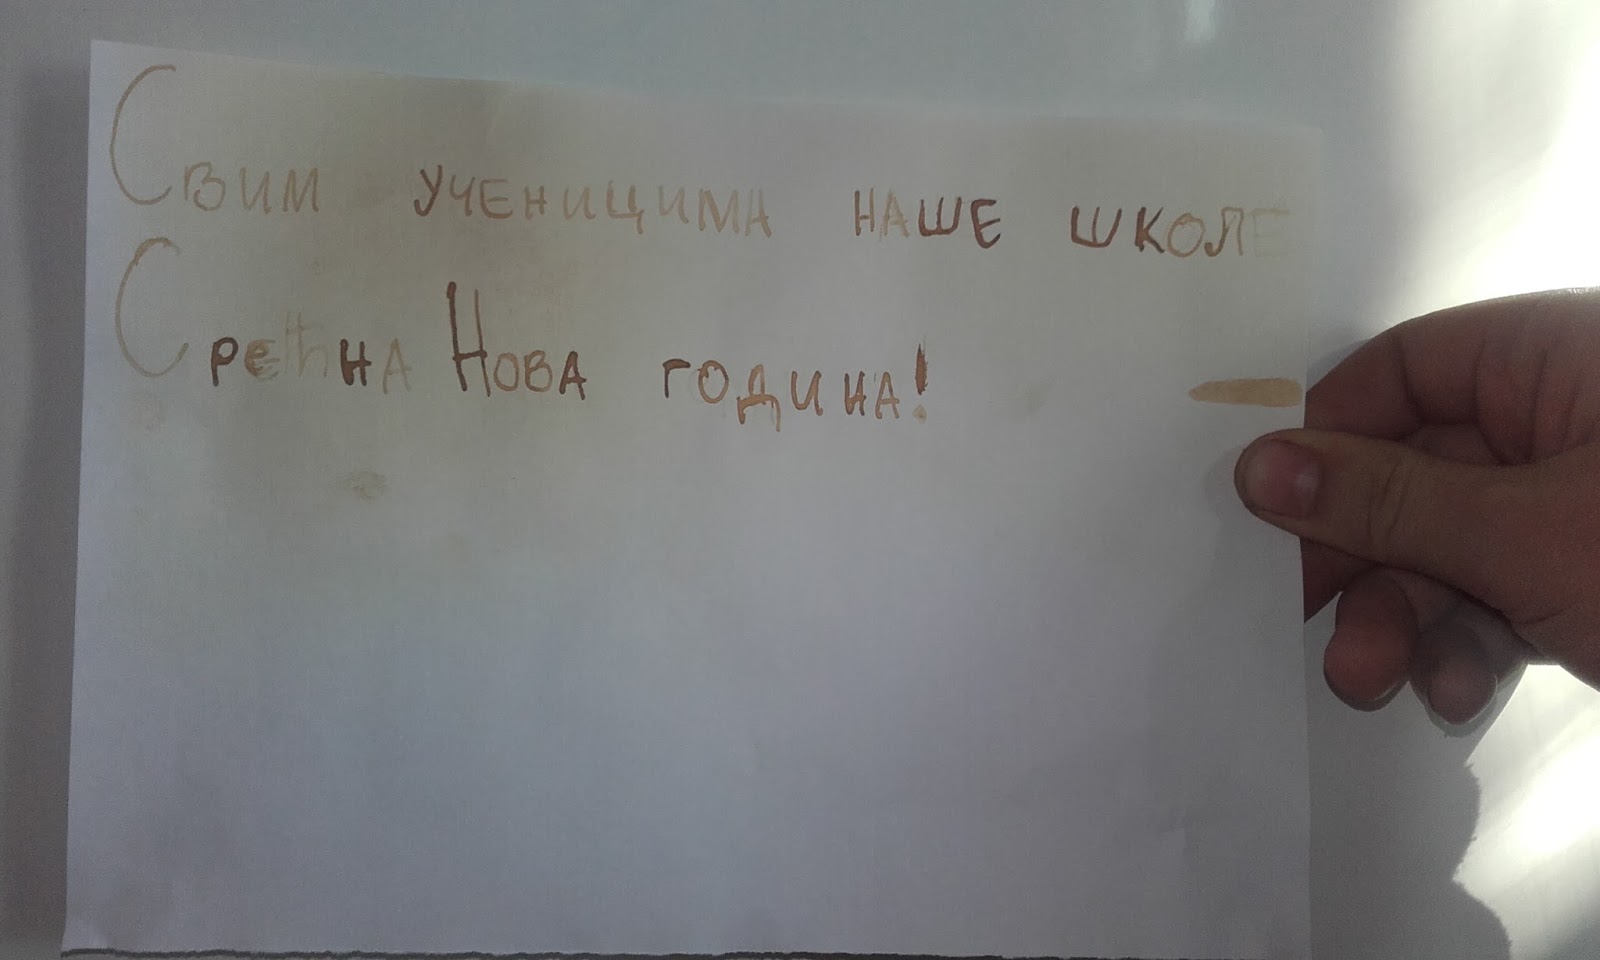 Свим ученицима наше школе
Срећна Нова година!